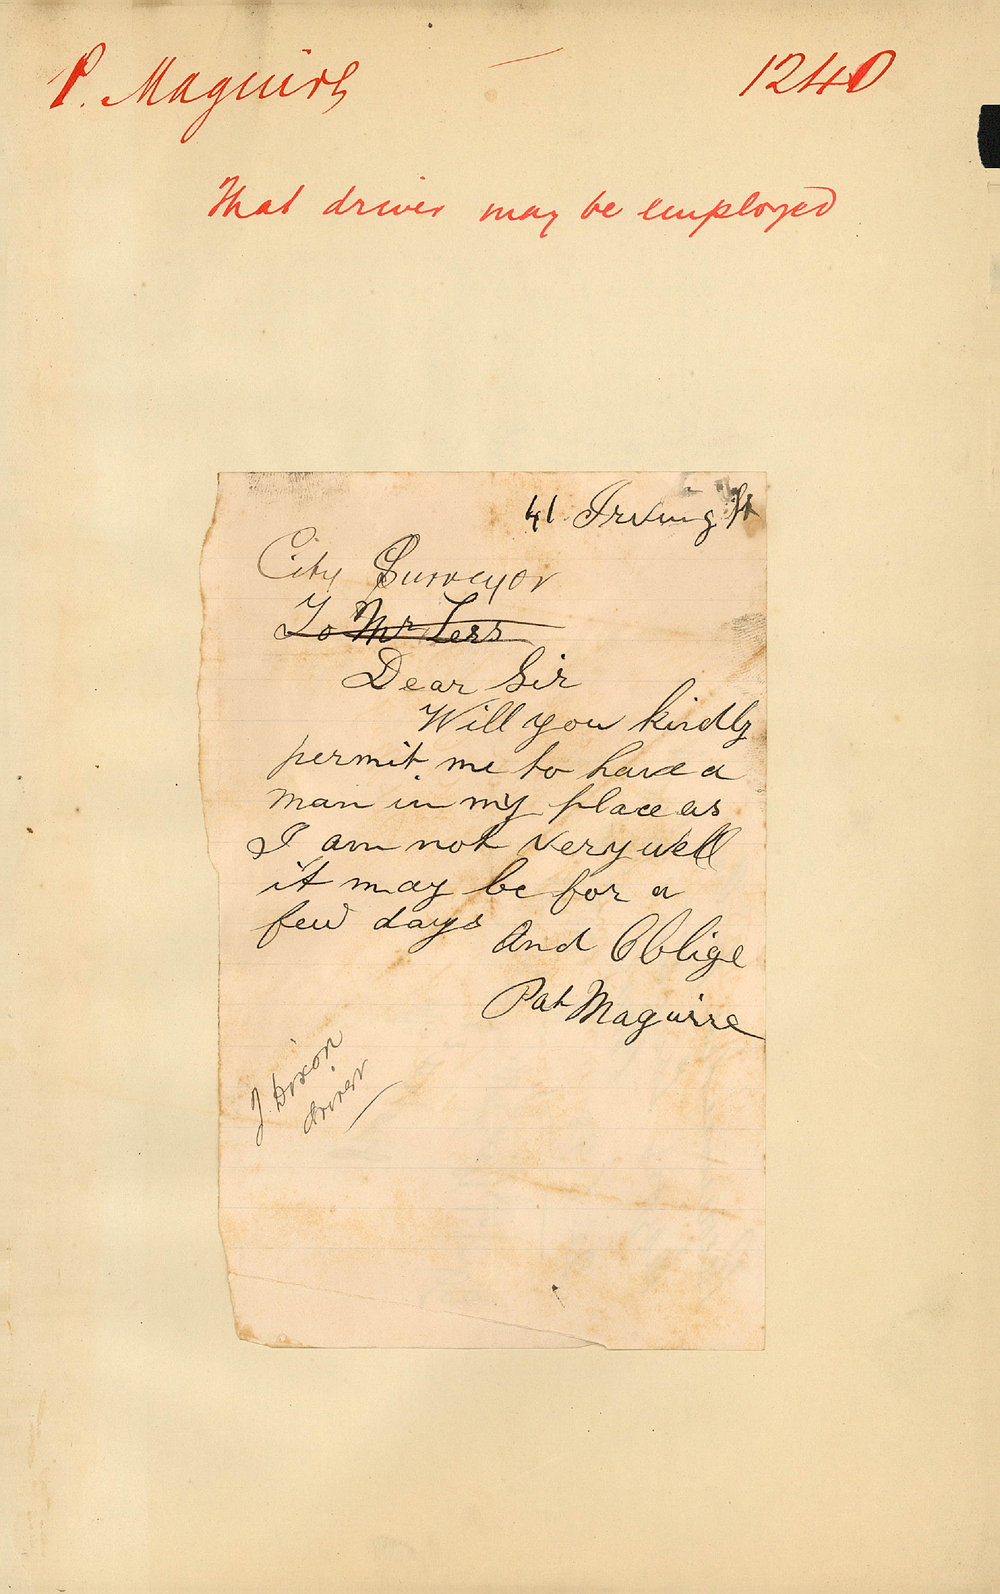 P. Maguire — 1240
That driver may be employed
41. Irving St
City Surveyor
To Mr Less
Dear Sir
Will you kindly
permit me to have a
man in my place as
I am not very well
it may be for a
few days
And Oblige
Pat Maguire
J. Dixon
driver